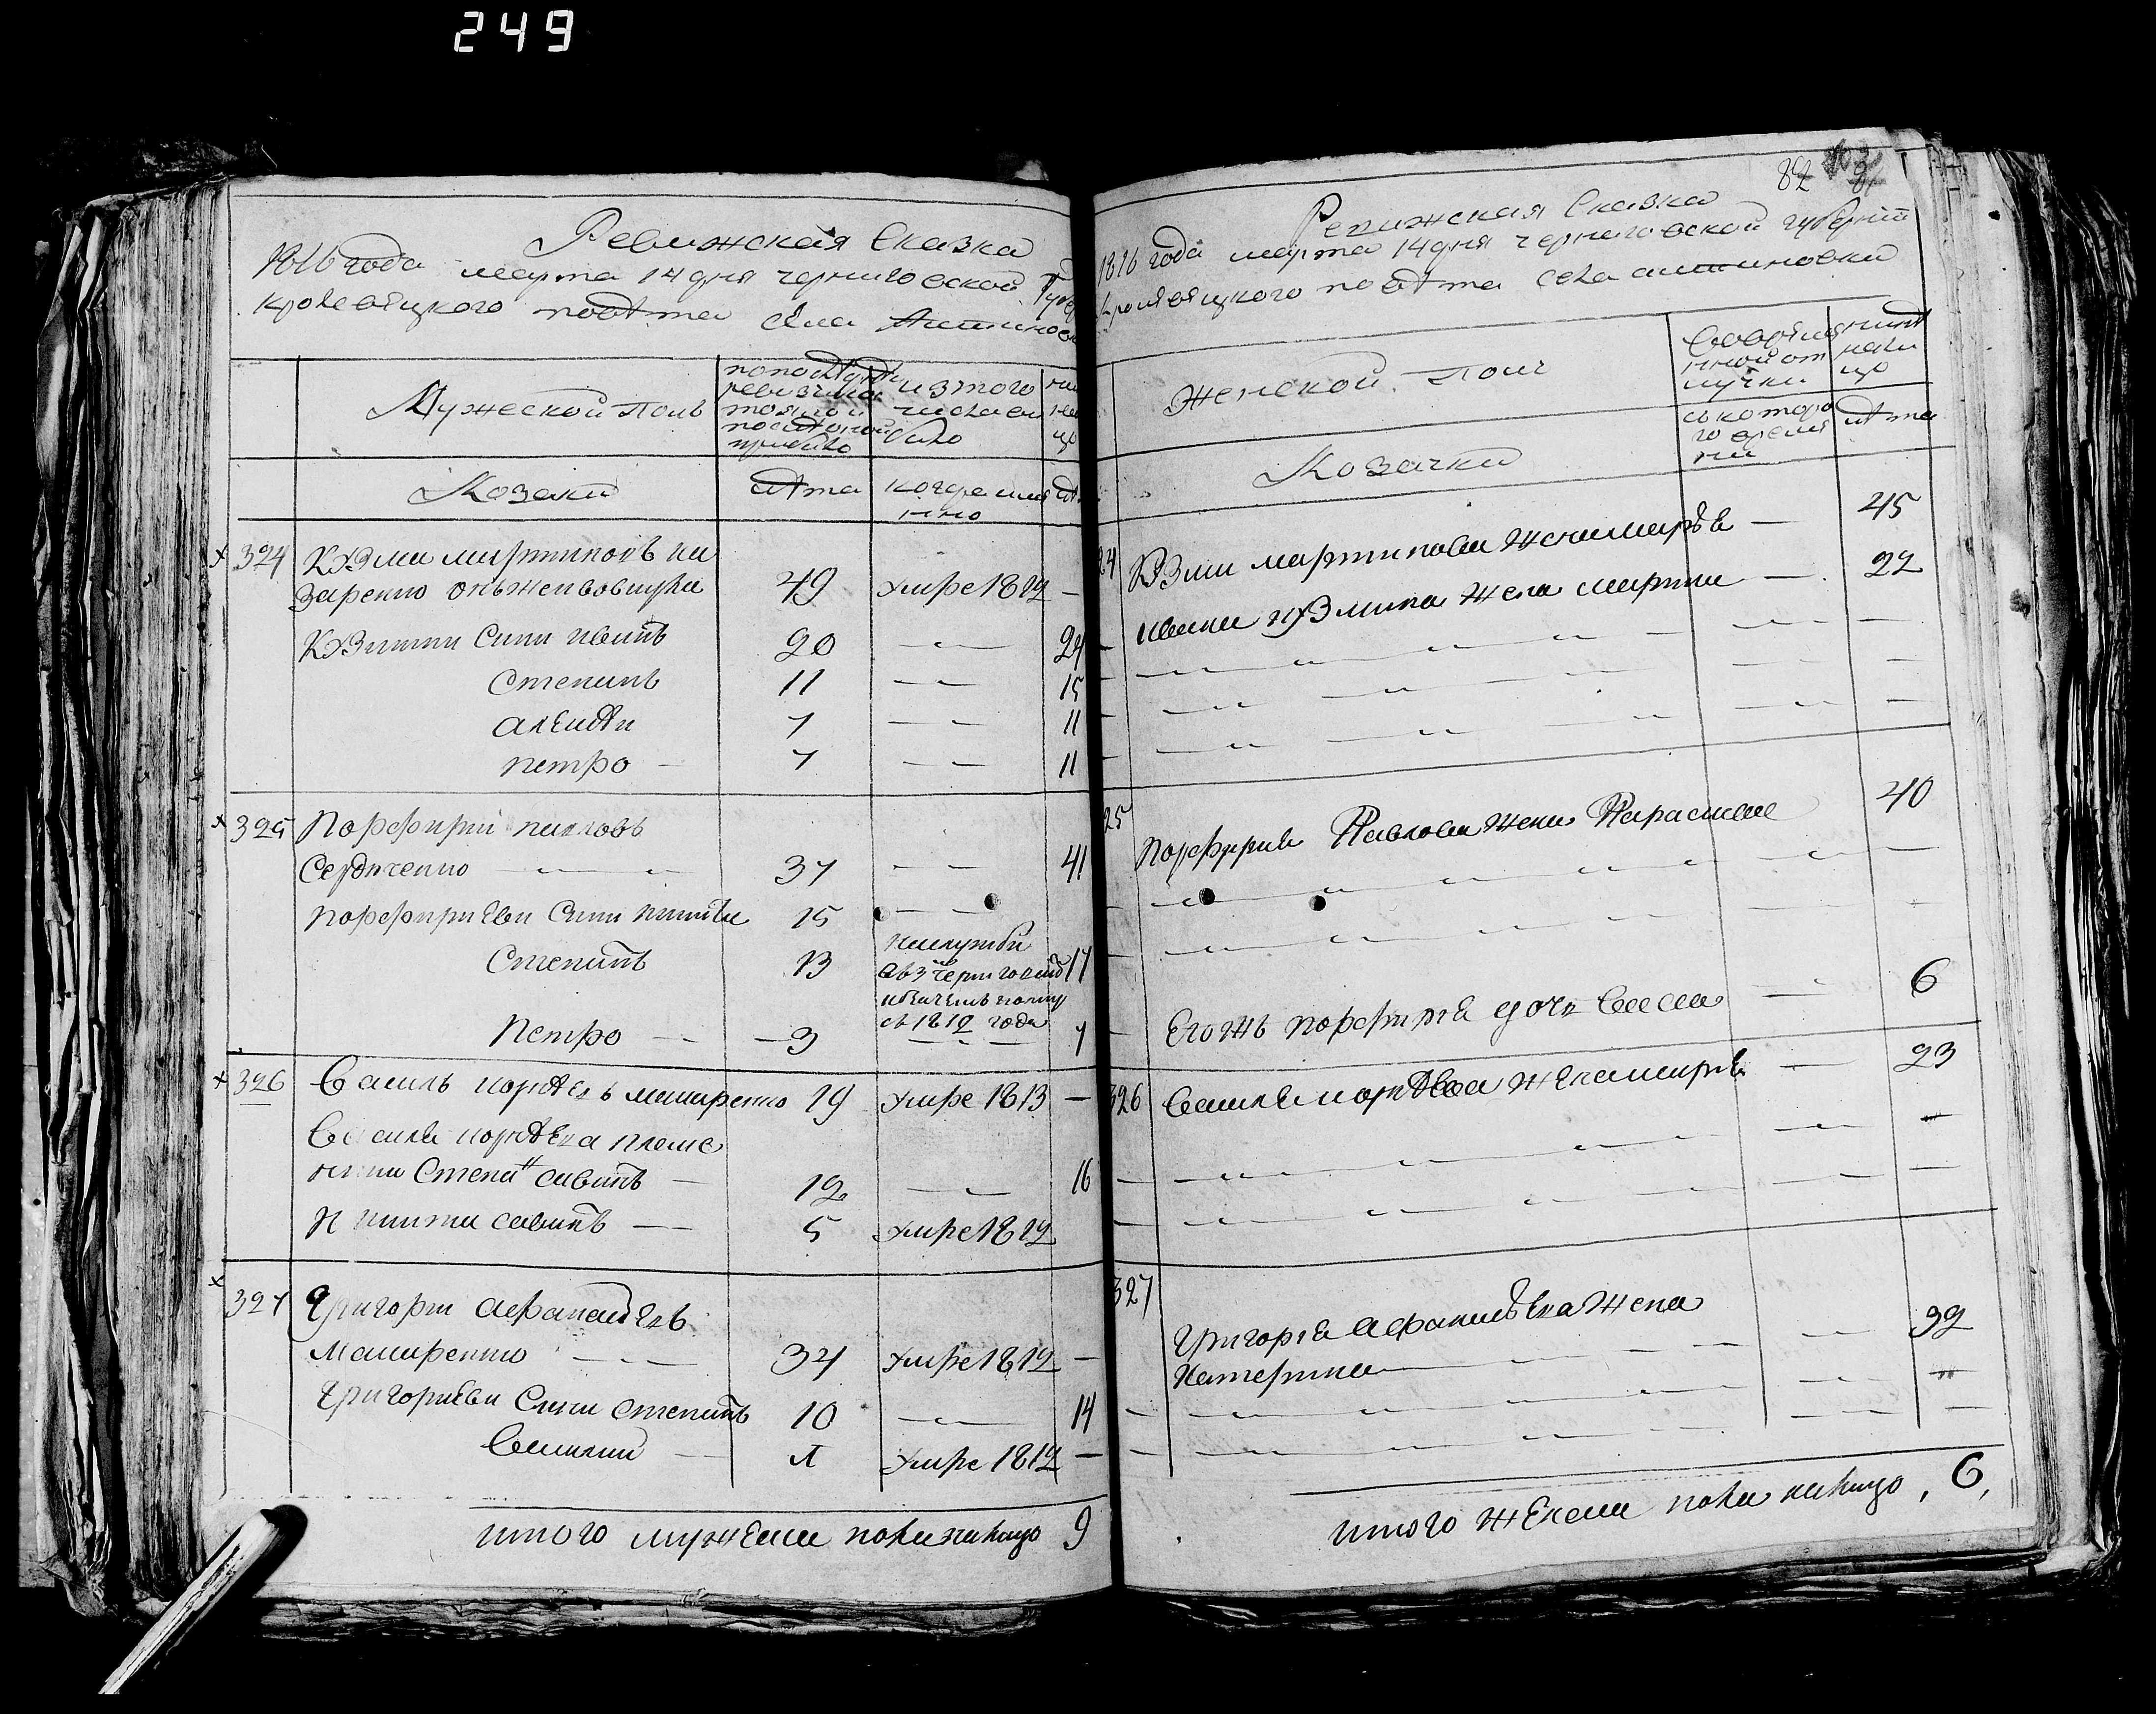 249
Ревижская Сказка
1816 года марта 14 дня черниговской Губер
кролевецкого повѣта села Антоновк
Мужеской Полъ
по последней ревизии состояло и после оной прибыло
из того числа выбило
Козаки
лѣта
когда именно
лѣ
324 Кузма мартиновъ на
заренко онъ же вовчука 49 умре 1812 —
Кузмини сини иванъ 20 — 24
Степанъ 11 — 15
алексѣй 7 — 11
петро — 7 — 11
325 Порфирий павловъ
Сердюченко — 37 — 41
порфириеви сини никита 15 —
Степанъ 13 17
на службѣ
в 3й черниговский
козачемъ полку
съ 1812 года
Петро — 3 — 7
326 Василь корнѣевъ машренко 19 умре 1813 —
Василя корнѣева племе
ники Степанъ савинъ — 12 — 16
Никита савинъ — 5 умре 1812
327 Григорий афанасиевъ
Машренко — 34 умре 1812 —
Григориеви Сини Степанъ 10 — 14
Василий — умре 1812 —
итого мужеска пола налицо 9
82
Ревижская Сказка
1816 года марта 14 дня черниговской губернии
кролевецкого повѣта села антоновки
Женской Полъ
во временной отлучки
ныне налицо
съ которого времени
лѣта
Козачки
24 Кузми мартинова жена марья — 45
ивана кузмина жена марина — 22
25 порфирия Павлова жена Параскева 40
Его жъ порфирия дочь васса — 6
326 василя корнѣева жена марья — 23
327 Григория афанасиева жена
Катерина — 32
итого женска пола налицо, 6,